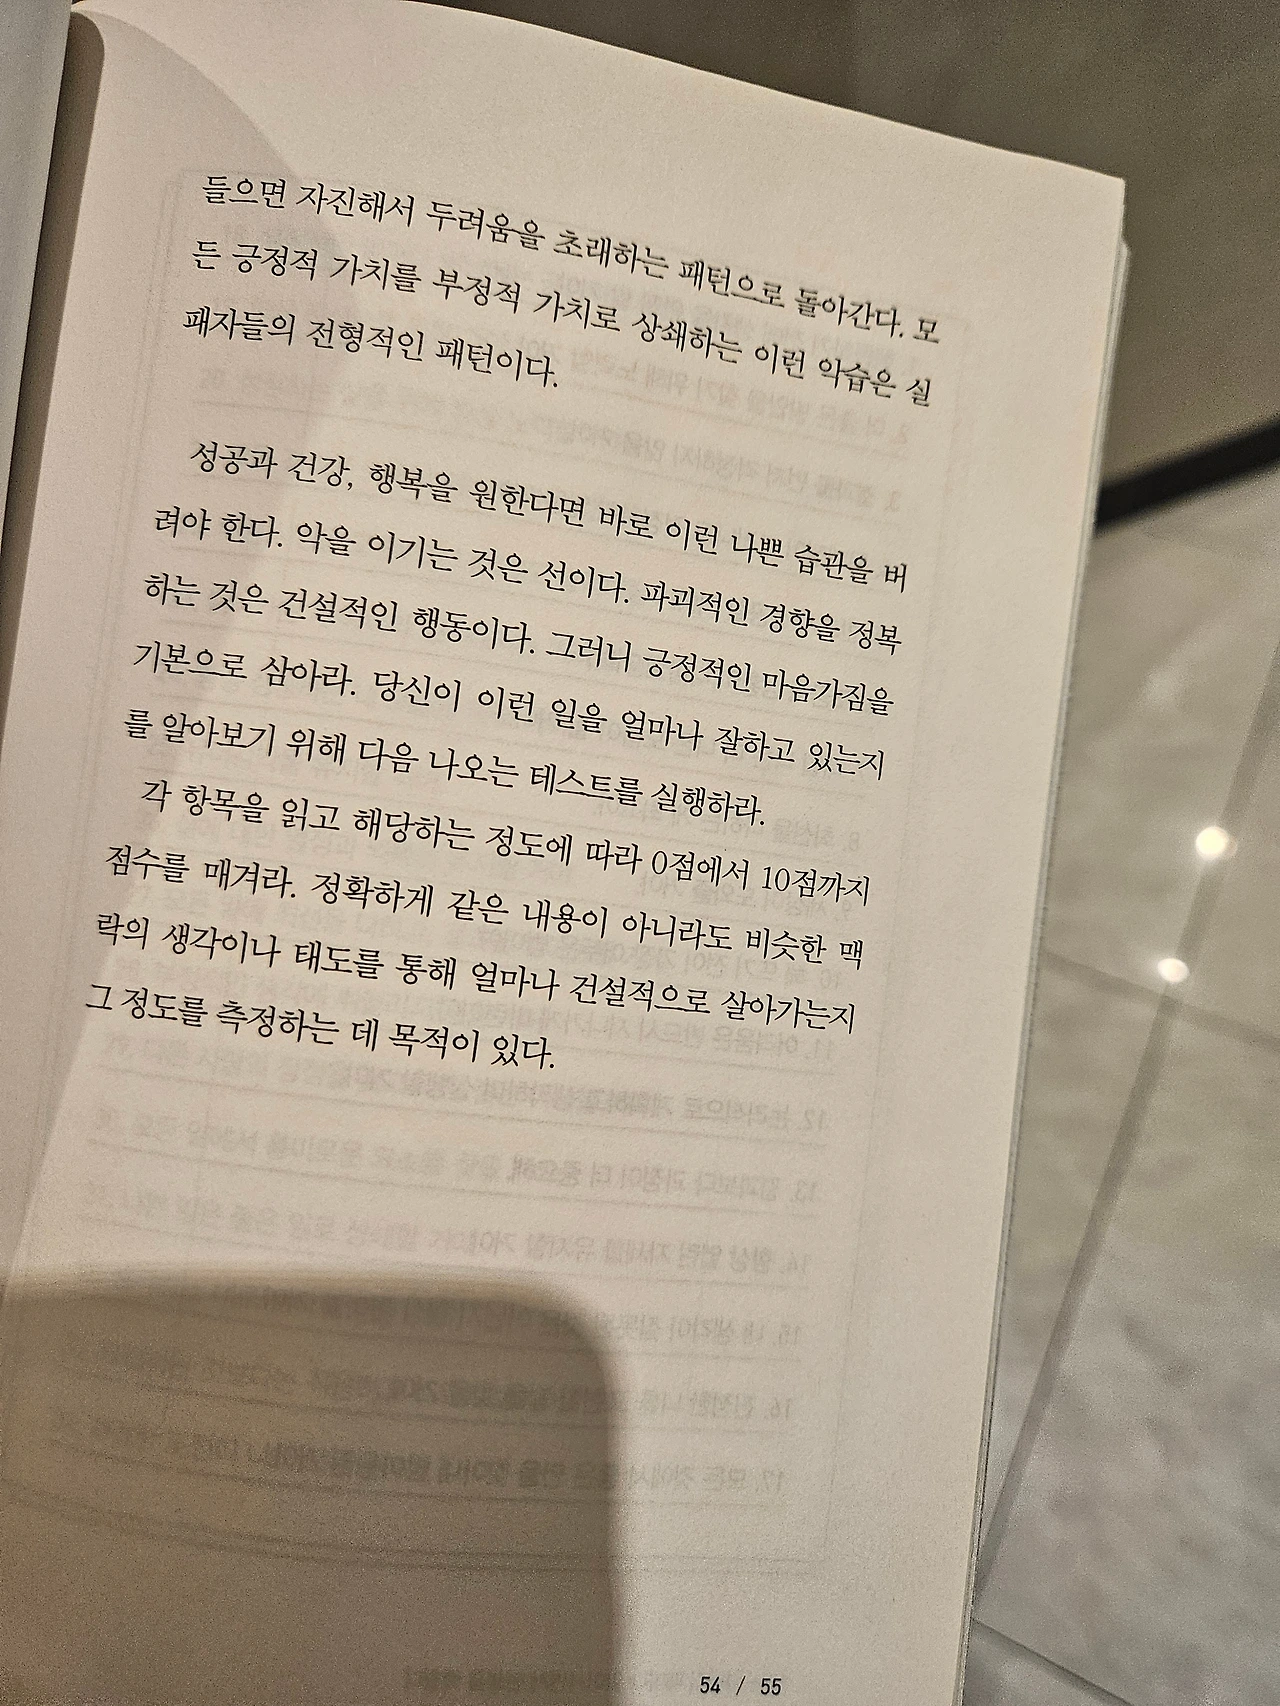 들으면 자진해서 두려움을 초래하는 패턴으로 돌아간다. 모
든 긍정적 가치를 부정적 가치로 상쇄하는 이런 악습은 실
패자들의 전형적인 패턴이다.
성공과 건강, 행복을 원한다면 바로 이런 나쁜 습관을 버
려야 한다. 악을 이기는 것은 선이다. 파괴적인 경향을 정복
하는 것은 건설적인 행동이다. 그러니 긍정적인 마음가짐을
기본으로 삼아라. 당신이 이런 일을 얼마나 잘하고 있는지
를 알아보기 위해 다음 나오는 테스트를 실행하라.
각 항목을 읽고 해당하는 정도에 따라 0점에서 10점까지
점수를 매겨라. 정확하게 같은 내용이 아니라도 비슷한 맥
락의 생각이나 태도를 통해 얼마나 건설적으로 살아가는지
그 정도를 측정하는 데 목적이 있다.
54 / 55